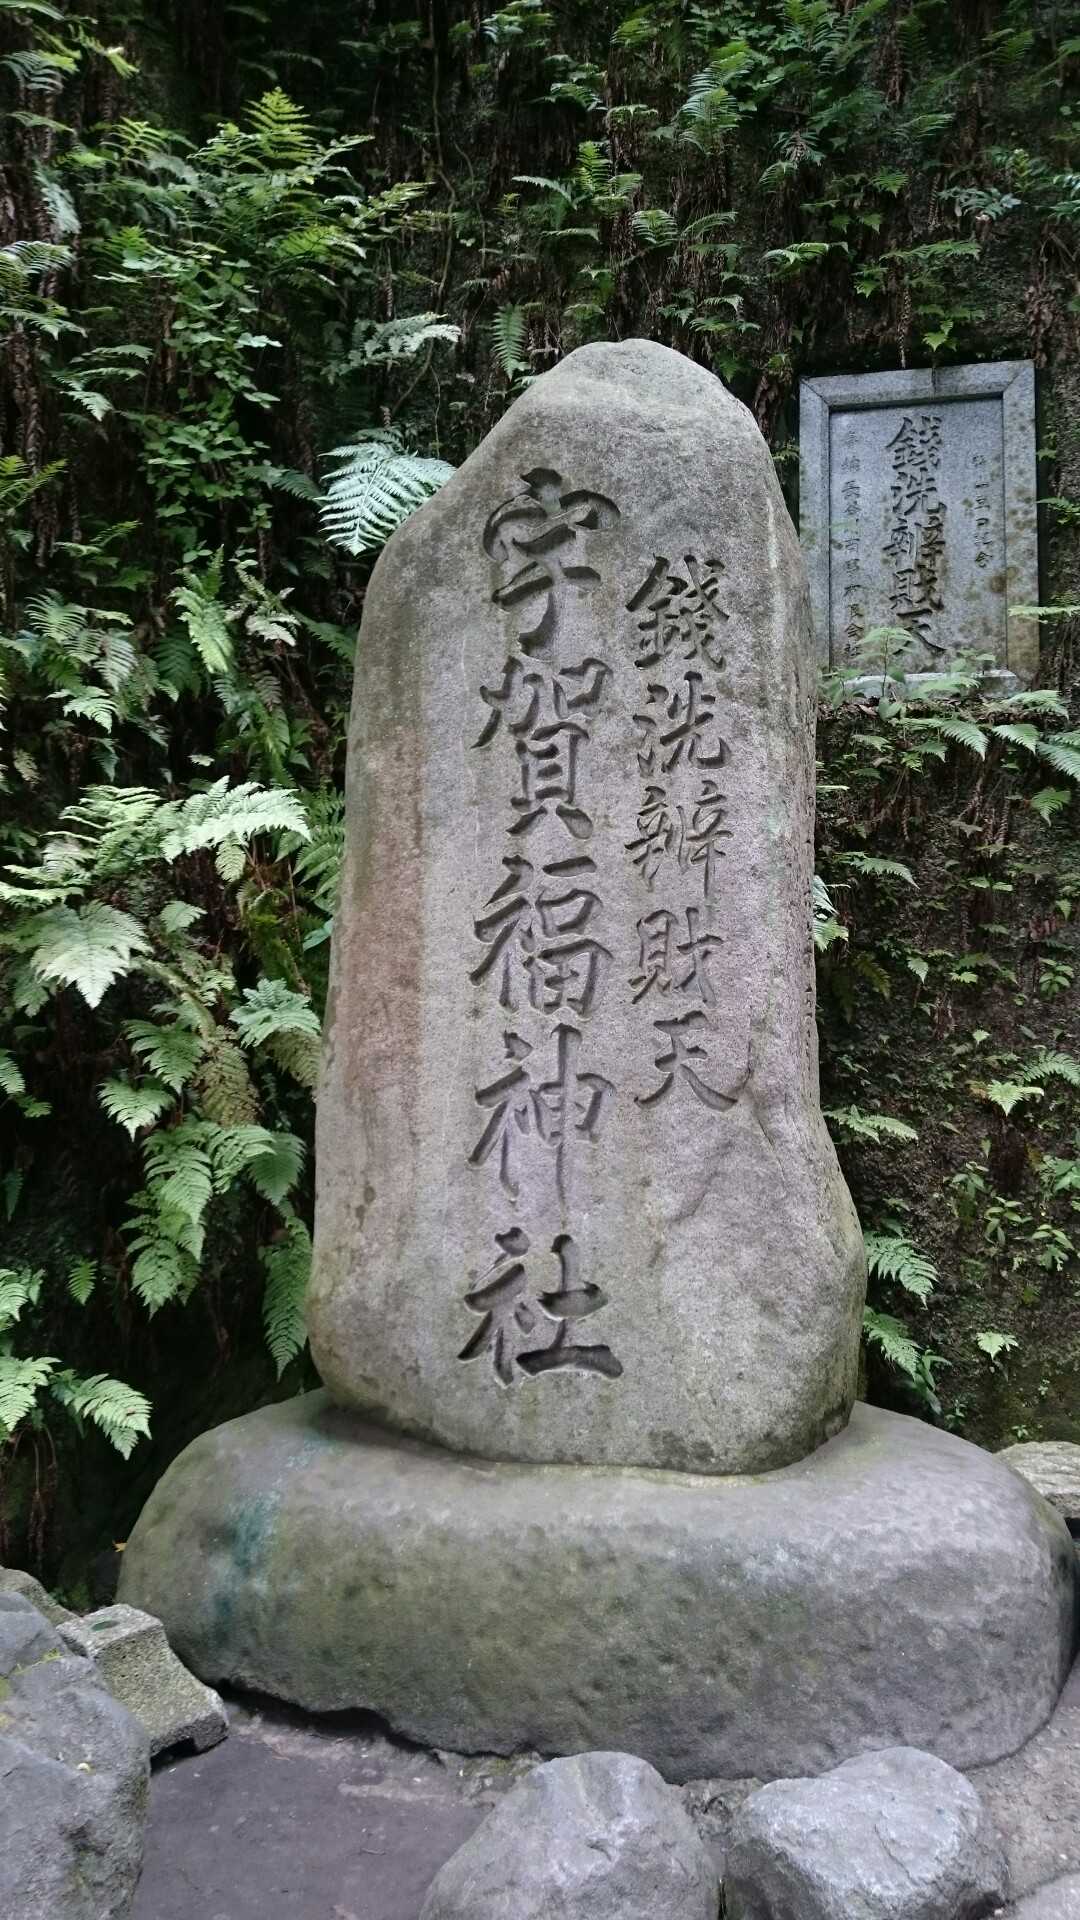 銭洗辨財天
錢洗辨財天
宇賀福神社